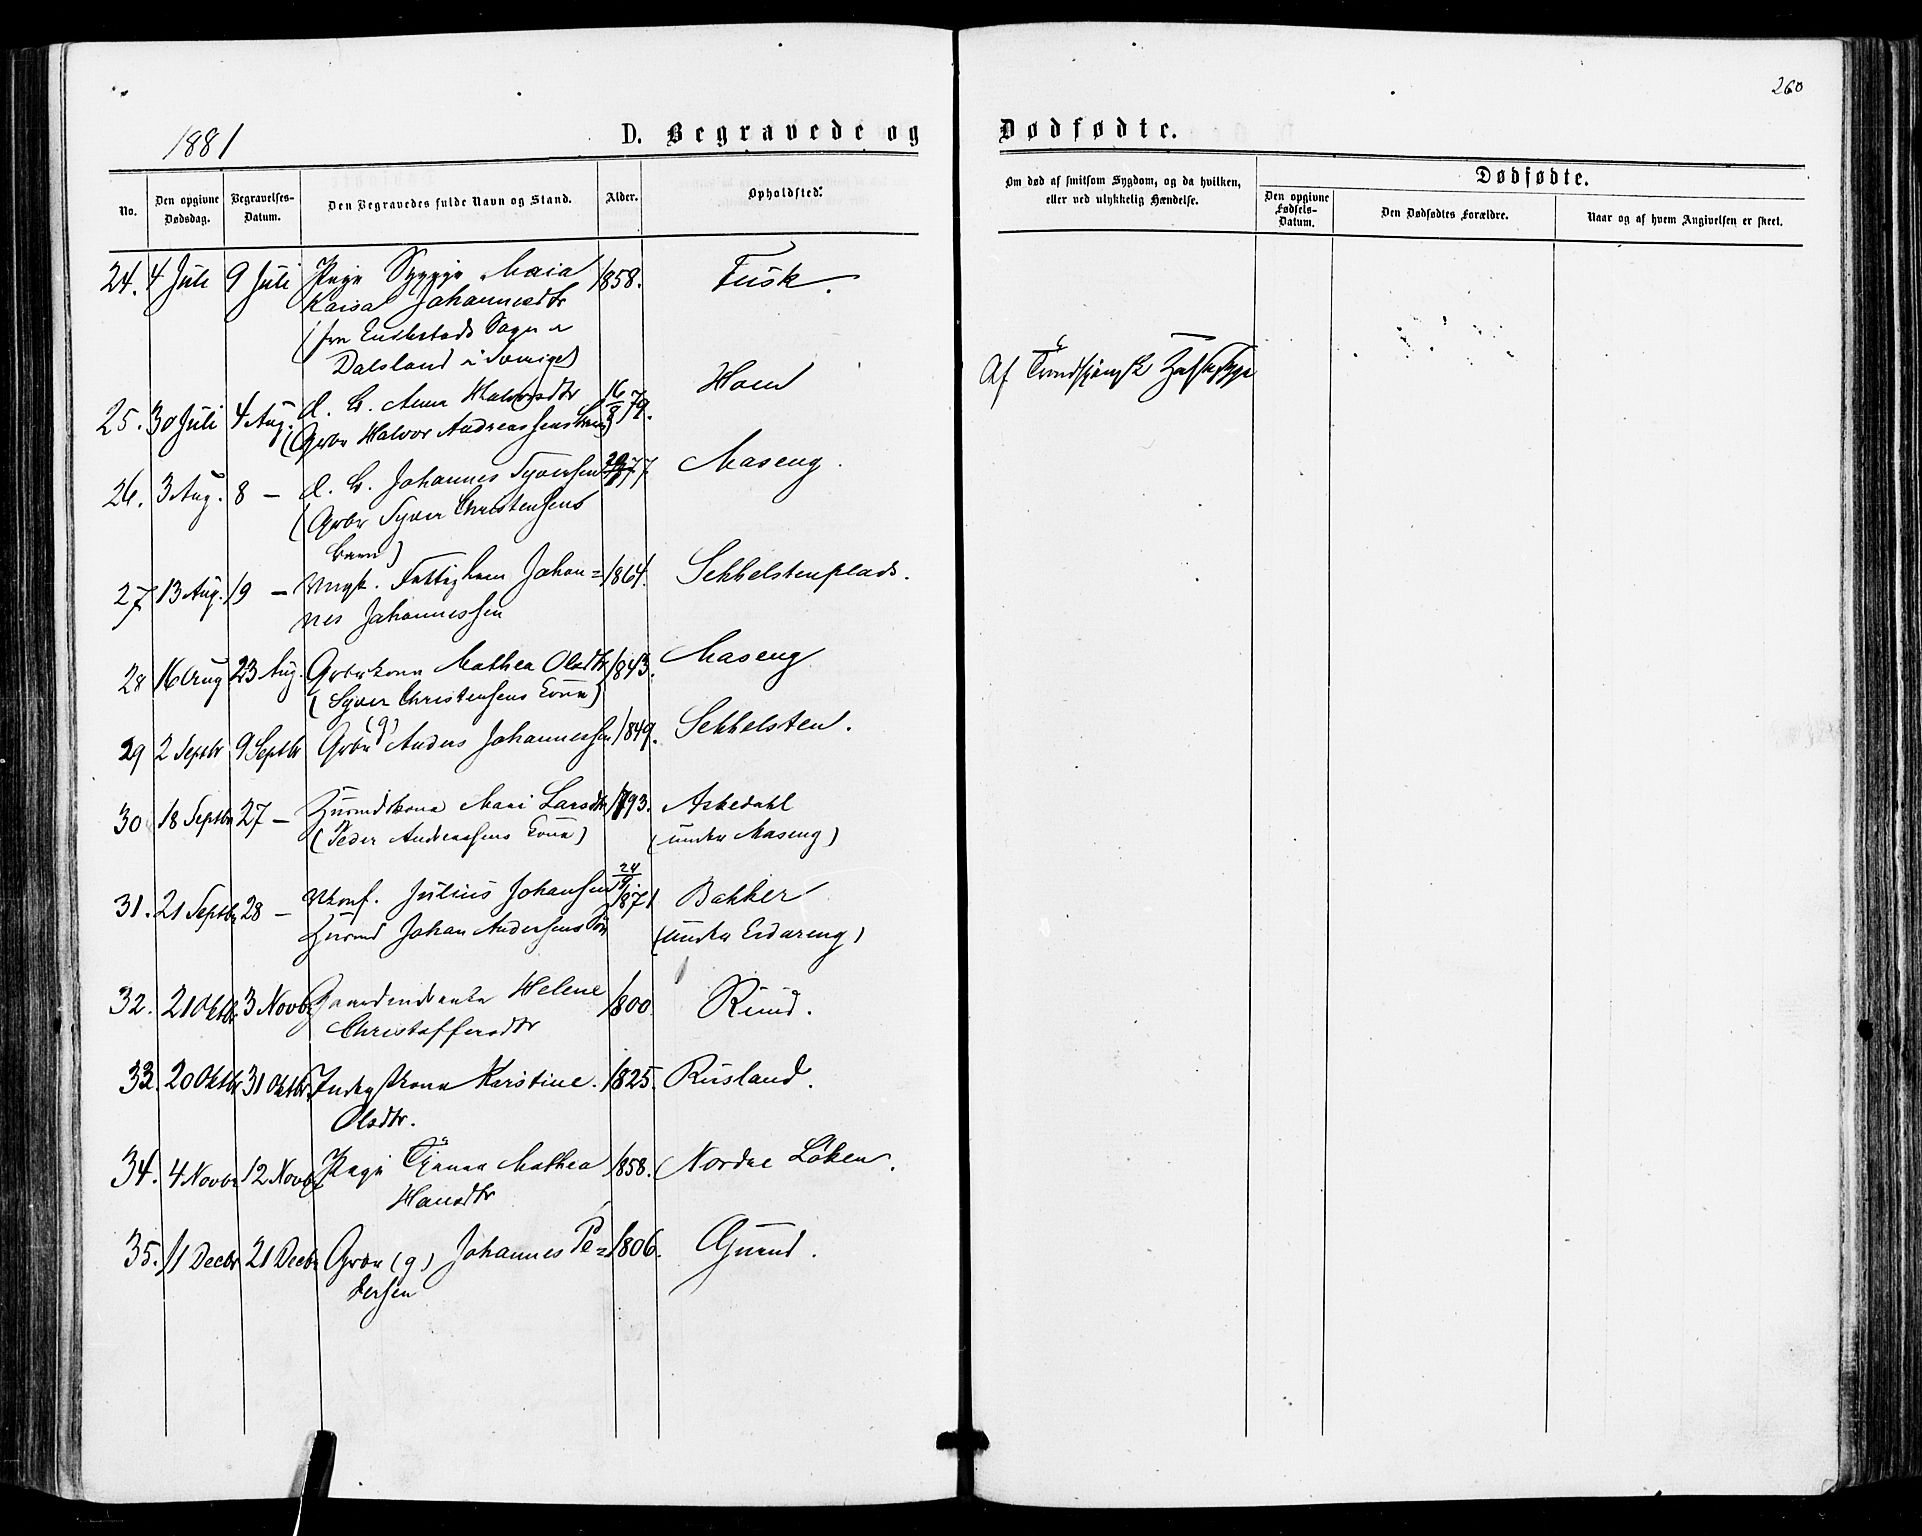 260
1881
D. Begravede og Dødfødte.
No.
Den opgivne Dødsdag.
Begravelses-Datum.
Den Begravedes fulde Navn og Stand.
Alder.
Opholdsted.
Om død af smitsom Sygdom, og da hvilken, eller ved ulykkelig Hændelse.
Dødfødte.
Den opgivne Fødsels-Datum.
Den Dødfødtes Forældre.
Naar og af hvem Angivelsen er skeet.
24. 4 Juli 9 Juli Pige Maia 1858. Fusk.
Kaisa Johannesdtr
(fra Sogn i
Dalsland i Sverige)
25. 30 Juli 4 Aug. d. b. Anna Halvorsdtr 16/8 79. Hoen
(Grbr Halvor Andreassens
26. 3 Aug. 8 – d. b. Johannes Syversen 77 Maseng.
(Grbr Syver Christensens
barn)
27 13 Aug. 19 – Johan= 1864. Sekkelstenplads.
nes Johannessen
28 16 Aug 23 Aug. Gbrkone Mathea Olsdtr 1843. Maseng
(Syver Christensens Kone)
29 2 Septbr 9 Septbr Gbr (g) Anders Johannessen 1849. Sekkelsten.
30 18 Septbr 27 – Husmdskone Mari Larsdtr 1793. Askedahl
(Peder Andreassens Kone) (under Maseng)
31. 21 Septbr 28 – Ukonf. Julius Johansen 1871 Bakker
Husmd Johan Andersens Søn (under Eidareng)
32. 21 Oktbr 3 Novbr Gaardmdsenke Helene 1800 Ruud.
Christoffersdtr
33. 20 Oktbr 31 Oktbr Kone Karstine 1825. Rusland.
Olsdtr.
34. 4 Novbr 12 Novbr Pige Mathea 1858. Nordre Løken.
Hansdtr
35. 11 Decbr 21 Decbr Gbr (g) Johannes Pe= 1806.
dersen